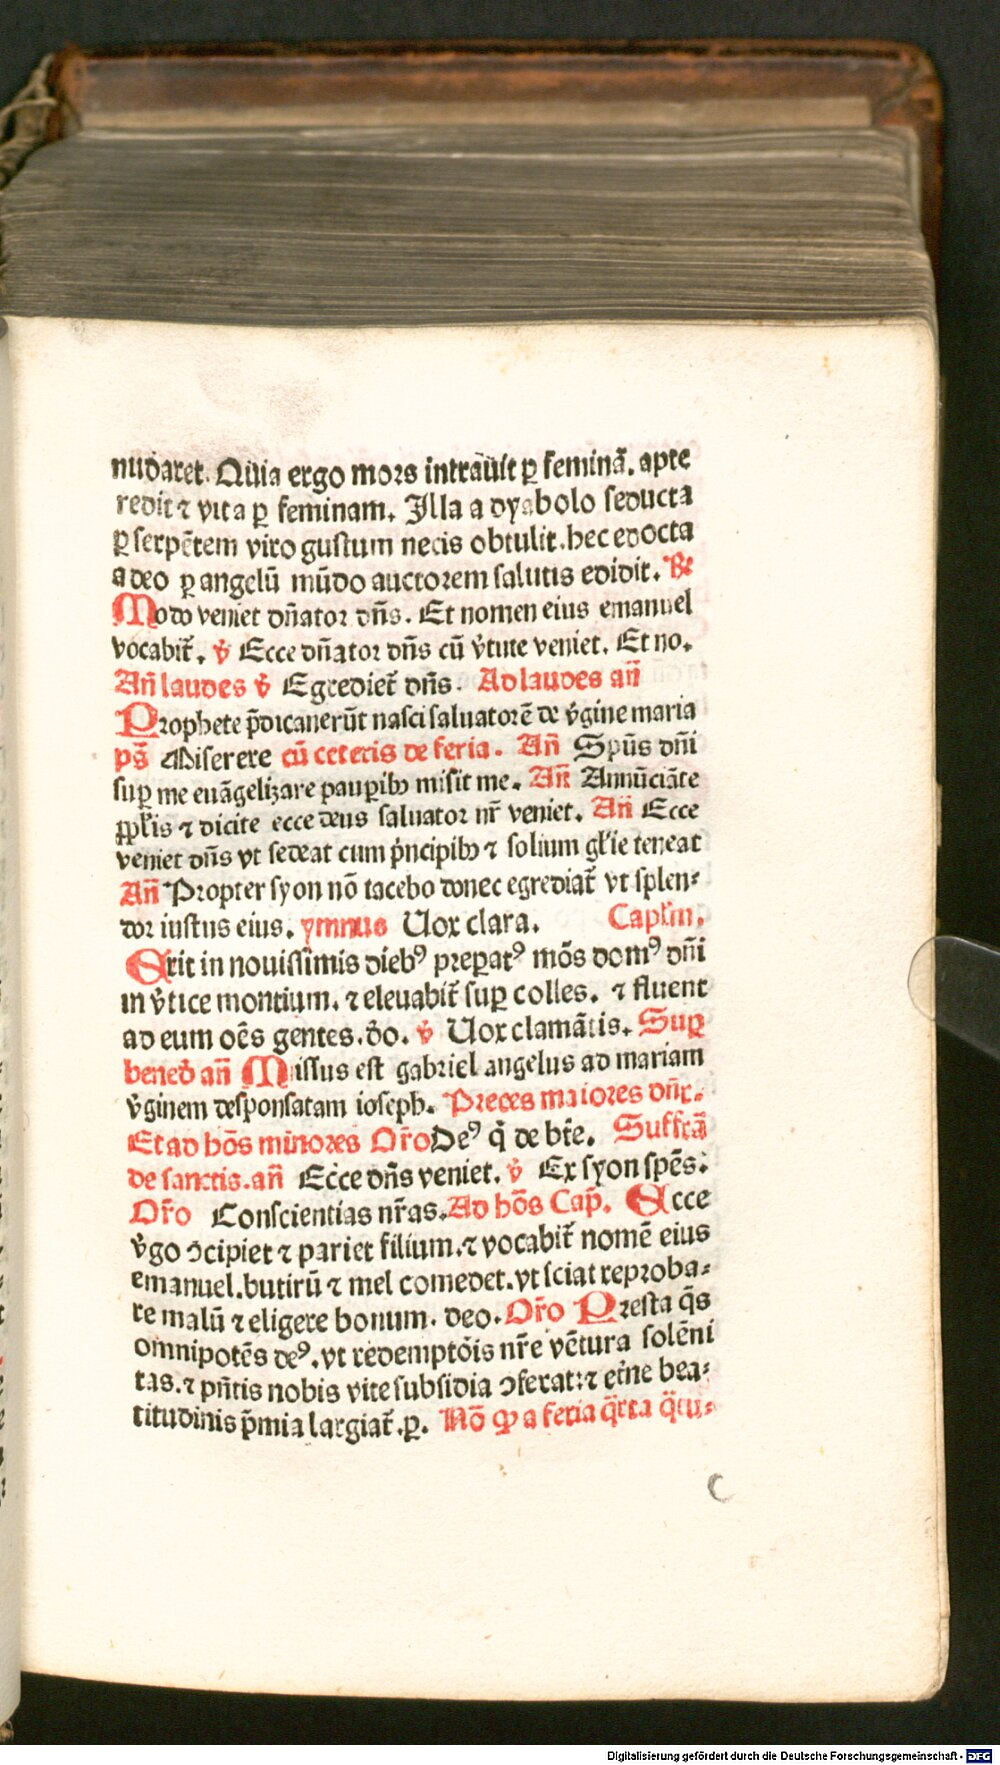 nudaret. Quia ergo mors intrauit ꝑ feminā. apte
redit ⁊ vita ꝑ feminam. Illa a dyabolo seducta
ꝑ serpētem viro gustum necis obtulit. hec edocta
a deo ꝑ angelū mūdo auctorem salutis edidit. ℞
Modo veniet dn̄ator dn̄s. Et nomen eius emanuel
vocabit᷑. v̓ Ecce dn̄ator dn̄s cū v̓tute veniet. Et no.
An̄ laudes v̓ Egrediet᷑ dn̄s. Ad laudes an̄
Prophete p̄dicauerūt nasci saluatorē de v̓gine maria
ps̄ Miserere cū ceteris de feria. An̄ Spūs dn̄i
suꝑ me euāgelizare pauꝑibꝫ misit me. An̄ Annūciāte
ppl̓is ⁊ dicite ecce deus saluator nr̄ veniet. An̄ Ecce
veniet dn̄s vt sedeat cum p̓ncipibꝫ ⁊ solium gl̓ie teneat
An̄ Propter syon nō tacebo donec egrediat᷑ vt splen-
dor iustus eius. ymnus Uox clara. Capl̓m.
Erit in nouissimis diebꝰ preparatꝰ mōs domꝰ dn̄i
in v̓tice montium. ⁊ eleuabit᷑ suꝑ colles. ⁊ fluent
ad eum oēs gentes. do. v̓ Uox clamātis. Suꝑ
bened̓ an̄ Missus est gabriel angelus ad mariam
v̓ginem desponsatam ioseph. Preces maiores dn̄r.
Et ad hōs minores Or̄o Deꝰ q̓ de bt̄e. Suffrā
de sanctis. an̄ Ecce dn̄s veniet. v̓ Ex syon spēs:
Or̄o Conscientias nr̄as. Ad hōs Cap̄. Ecce
v̓go ↄcipiet ⁊ pariet filium. ⁊ vocabit᷑ nomē eius
emanuel. butirū ⁊ mel comedet. vt sciat reproba-
re malū ⁊ eligere bonum. deo. Or̄o Presta q̄s
omnipotēs deꝰ. vt redemptōis nr̄e vētura solēni
tas. ⁊ pn̄tis nobis vite subsidia ↄferat: ⁊ et̓ne bea-
titudinis p̄mia largiat᷑. ꝑ. Nō ꝙ a feria q̄rta q̄tu-
C
Digitalisierung gefördert durch die Deutsche Forschungsgemeinschaft - DFG